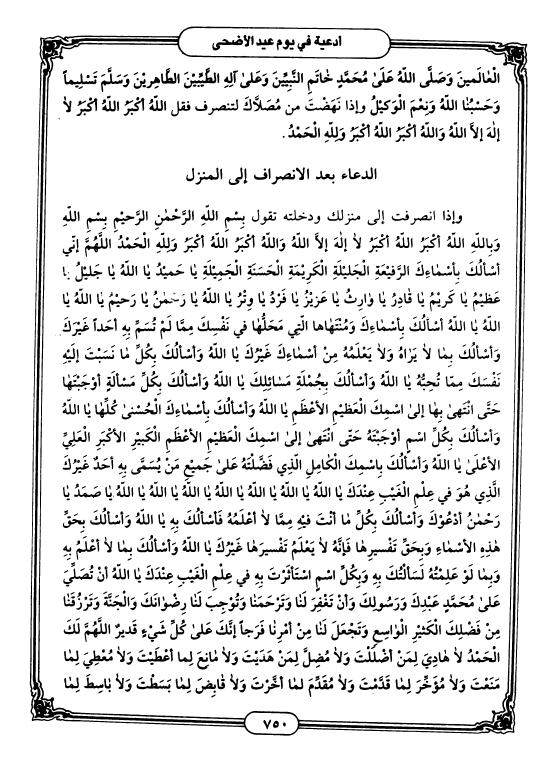 أدعية في يوم عيد الأضحى
الْعٰالَمينَ وَصَلَّى اللّٰهُ عَلىٰ مُحَمَّدٍ خٰاتَمِ النَّبِيِّينَ وَعَلىٰ آلِهِ الطَّيِّبِيْنَ الطّٰاهِريْنَ وَسَلَّمَ تَسْلِيماً
وَحَسْبُنٰا اللّٰهُ وَنِعْمَ الْوَكيْلُ وإذا نَهَضْتَ من مُصَلاَّكَ لتنصرف فقل اللّٰهُ أكْبَرُ اللّٰهُ أكْبَرُ لاٰ
إلٰهَ إلاَّ اللّٰهُ وَاللّٰهُ أكْبَرُ اللّٰهُ أكْبَرُ وَلِلّٰهِ الْحَمْدُ.
الدعاء بعد الانصراف إلى المنزل
وإذا انصرفت إلى منزلك ودخلته تقول بِسْمِ اللّٰهِ الرَّحْمٰنِ الرَّحيْمِ بِسْمِ اللّٰهِ
وَبِاللّٰهِ اللّٰهُ أكْبَرُ اللّٰهُ أكْبَرُ لاٰ إلٰهَ إلاَّ اللّٰهُ وَاللّٰهُ أكْبَرُ اللّٰهُ أكْبَرُ وَلِلّٰهِ الْحَمْدُ اللّٰهُمَّ إنّي
أسْألُكَ بِأسْمٰاءِكَ الرَّفيْعَةِ الْجَليْلَةِ الْكَريْمَةِ الْحَسَنَةِ الْجَميْلَةِ يٰا حَميْدُ يٰا اللّٰهُ يٰا جَليْلُ يٰا
عَظيْمُ يٰا كَريْمُ يٰا قٰادِرُ يٰا وٰارِثُ يٰا عَزيْزُ يٰا فَرْدُ يٰا وِتْرُ يٰا اللّٰهُ يٰا رَحْمٰنُ يٰا رَحيْمُ يٰا اللّٰهُ يٰا
اللّٰهُ يٰا اللّٰهُ أسْألُكَ بِأسْمٰاءِكَ وَمُنْتَهٰاها الَّتي مَحَلُّهٰا في نَفْسِكَ مِمّٰا لَمْ تُسَمِّ بِهِ أحَداً غَيْرَكَ
وَأسْألُكَ بِمٰا لاٰ يَرٰاهُ وَلاٰ يَعْلَمُهُ مِنْ أسْمٰاءِكَ غَيْرُكَ يٰا اللّٰهُ وَأسْألُكَ بِكُلِّ مٰا نَسَبْتَ إلَيْهِ
نَفْسَكَ مِمّٰا تُحِبُّهُ يٰا اللّٰهُ وَأسْألُكَ بِجُمْلَةِ مَسٰائِلِكَ يٰا اللّٰهُ وَأسْألُكَ بِكُلِّ مَسْألَةٍ أوْجَبْتَهٰا
حَتَّى انْتَهىٰ بِهٰا إلىٰ اسْمِكَ الْعَظيْمِ الأعْظَمِ يٰا اللّٰهُ وَأسْألُكَ بِأسْمٰاءِكَ الْحُسْنىٰ كُلِّهٰا يٰا اللّٰهُ
وَأسْألُكَ بِكُلِّ اسْمٍ أوْجَبْتَهُ حَتَّى انْتَهىٰ إلىٰ اسْمِكَ الْعَظيْمِ الأعْظَمِ الْكَبيْرِ الأكْبَرِ الْعَلِيِّ
الأعْلىٰ يٰا اللّٰهُ وَأسْألُكَ بِاسْمِكَ الْكٰامِلِ الَّذي فَضَّلْتَهُ عَلىٰ جَميْعِ مَنْ يُسَمّى بِهِ أحَدٌ غَيْرُكَ
الَّذي هُوَ في عِلْمِ الْغَيْبِ عِنْدَكَ يٰا اللّٰهُ يٰا اللّٰهُ يٰا اللّٰهُ يٰا اللّٰهُ يٰا اللّٰهُ يٰا اللّٰهُ يٰا اللّٰهُ يٰا صَمَدُ يٰا
رَحْمٰنُ أدْعُوْكَ وَأسْألُكَ بِكُلِّ مٰا أنْتَ فيْهِ مِمّٰا لاٰ أعْلَمُهُ فَأسْألُكَ بِهِ يٰا اللّٰهُ وَأسْألُكَ بِحَقِّ
هٰذِهِ الأسْمٰاءِ وَبِحَقِّ تَفْسيْرِهٰا فَإنَّهُ لاٰ يَعْلَمُ تَفْسيْرَهٰا غَيْرُكَ يٰا اللّٰهُ وَأسْألُكَ بِمٰا لاٰ أعْلَمُ بِهِ
وَبِمٰا لَوْ عَلِمْتُهُ لَسَألْتُكَ بِهِ وَبِكُلِّ اسْمٍ اسْتَأثَرْتَ بِهِ في عِلْمِ الْغَيْبِ عِنْدَكَ يٰا اللّٰهُ أنْ تُصَلِّيَ
عَلىٰ مُحَمَّدٍ عَبْدِكَ وَرَسُولِكَ وَأنْ تَغْفِرَ لَنٰا وَتَرْحَمَنٰا وَتُوْجِبَ لَنٰا رِضْوٰانَكَ وَالْجَنَّةَ وَتَرْزُقَنٰا
مِنْ فَضْلِكَ الْكَثيْرِ الْوٰاسِعِ وَتَجْعَلَ لَنٰا مِنْ أمْرِنٰا فَرَجاً إنَّكَ عَلىٰ كُلِّ شَيْءٍ قَديْرٌ اللّٰهُمَّ لَكَ
الْحَمْدُ لاٰ هٰادِيَ لِمَنْ أضْلَلْتَ وَلاٰ مُضِلَّ لِمَنْ هَدَيْتَ وَلاٰ مٰانِعَ لِما أعْطَيْتَ وَلاٰ مُعْطِيَ لِمٰا
مَنَعْتَ وَلاٰ مُؤَخِّرَ لِمٰا قَدَّمْتَ وَلاٰ مُقَدِّمَ لِمٰا أخَّرْتَ وَلاٰ قٰابِضَ لِمٰا بَسَطْتَ وَلاٰ بٰاسِطَ لِمٰا
٧٥٠